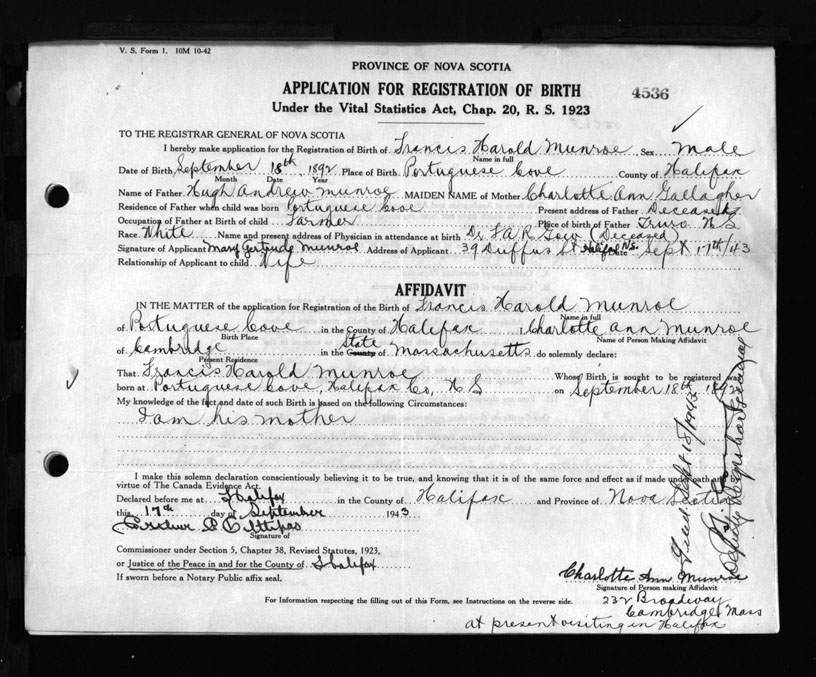 V. S. Form 1. 10M 10-42
PROVINCE OF NOVA SCOTIA
APPLICATION FOR REGISTRATION OF BIRTH 4536
Under the Vital Statistics Act, Chap. 20, R. S. 1923
TO THE REGISTRAR GENERAL OF NOVA SCOTIA
I hereby make application for the Registration of Birth of Francis Harold Munroe Sex Male
Name in full
Date of Birth September 18th 1892 Place of Birth Portuguese Cove County of Halifax
Month Date Year
Name of Father Hugh Andrew Munroe MAIDEN NAME of Mother Charlotte Ann Gallagher
Residence of Father when child was born Portuguese Cove Present address of Father Deceased
Occupation of Father at Birth of child Farmer Place of birth of Father Truro N S
Race White Name and present address of Physician in attendance at birth Dr (Deceased)
Signature of Applicant Mary Gertrude Munroe Address of Applicant 39 Duffus St Halifax N.S. Date Sept 17th/43
Relationship of Applicant to child Wife
AFFIDAVIT
IN THE MATTER of the application for Registration of the Birth of Francis Harold Munroe
Name in full
of Portuguese Cove in the County of Halifax I Charlotte Ann Munroe
Birth Place Name of Person Making Affidavit
of Cambridge in the County State of Massachusetts do solemnly declare:
Present Residence
That Francis Harold Munroe Whose Birth is sought to be registered was
born at Portuguese Cove, Halifax Co, N S on September 18th 1892
My knowledge of the fact and date of such Birth is based on the following Circumstances:
I am his mother
I make this solemn declaration conscientiously believing it to be true, and knowing that it is of the same force and effect as if made under oath and by
virtue of The Canada Evidence Act.
Declared before me at Halifax in the County of Halifax and Province of Nova Scotia
this 17th day of September 1943
Signature of
Commissioner under Section 5, Chapter 38, Revised Statutes, 1923,
or Justice of the Peace in and for the County of Halifax
If sworn before a Notary Public affix seal.
Charlotte Ann Munroe
Signature of Person making Affidavit
For Information respecting the filling out of this Form, see Instructions on the reverse side.
232 Broadway
Cambridge Mass
at present visiting in Halifax
Filed Sept 18/1943
Deputy Registrar General